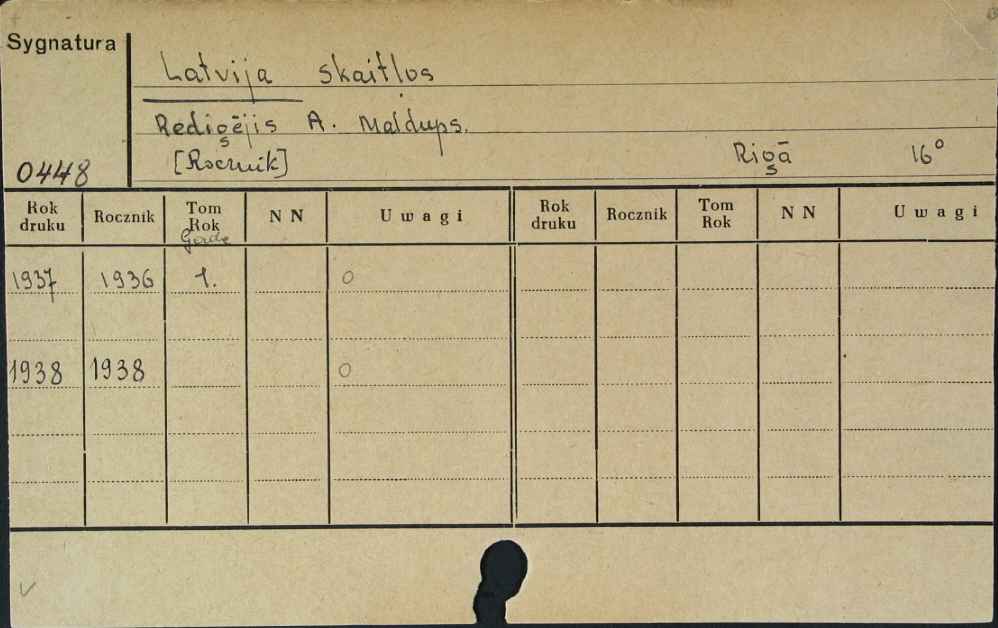 Sygnatura
Latvija skaitlos
Rediģējis A. Maldups.
[Rocznik] Rigā 16°
0448
Rok druku Rocznik Tom Rok N N Uwagi Rok druku Rocznik Tom Rok N N Uwagi
1937 1936 1. 0
1938 1938 0